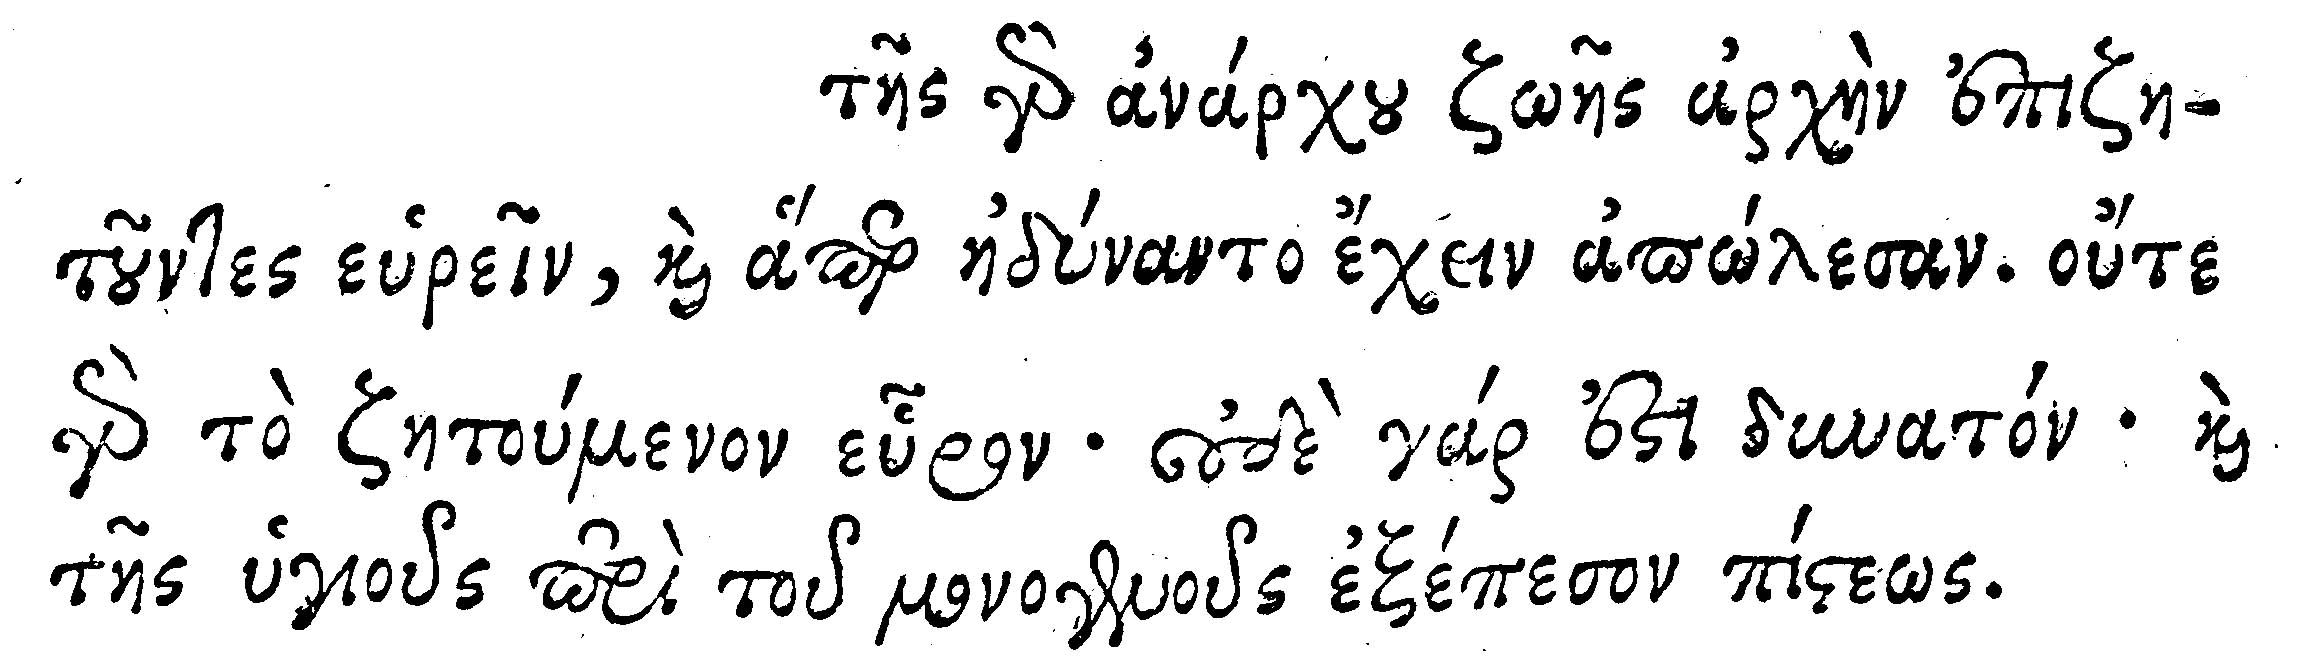 τῆς γὰρ ἀνάρχου ζωῆς ἀρχὴν ἐπιζη-
τοῦντες εὑρεῖν, καὶ ἅπερ ἠδύναντο ἔχειν ἀπώλεσαν. οὔτε
γὰρ τὸ ζητούμενον εὗρον · οὐδὲ γάρ ἐστι δυνατόν · καὶ
τῆς ὑγιοῦς περὶ τοῦ μονογενοῦς ἐξέπεσον πίστεως.